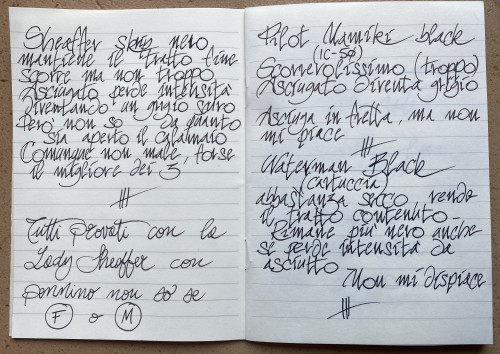 Sheaffer skrip nero
mantiene il tratto fine
scorre ma non troppo
Asciugato perde intensità
diventando un grigio scuro
Però non so da quanto
sia aperto il calamaio
Comunque non male, forse
il migliore dei 3
Tutti provati con la
Lady Sheaffer con
pennino non so se
F o M
Pilot Namiki black
(IC-50)
Scorrevolissimo (troppo)
Asciugato diventa grigio
Asciuga in fretta, ma non
mi piace
Waterman Black
(cartuccia)
abbastanza secco, rende
il tratto contenuto -
Rimane più nero anche
se perde intensità da
asciutto
Non mi dispiace